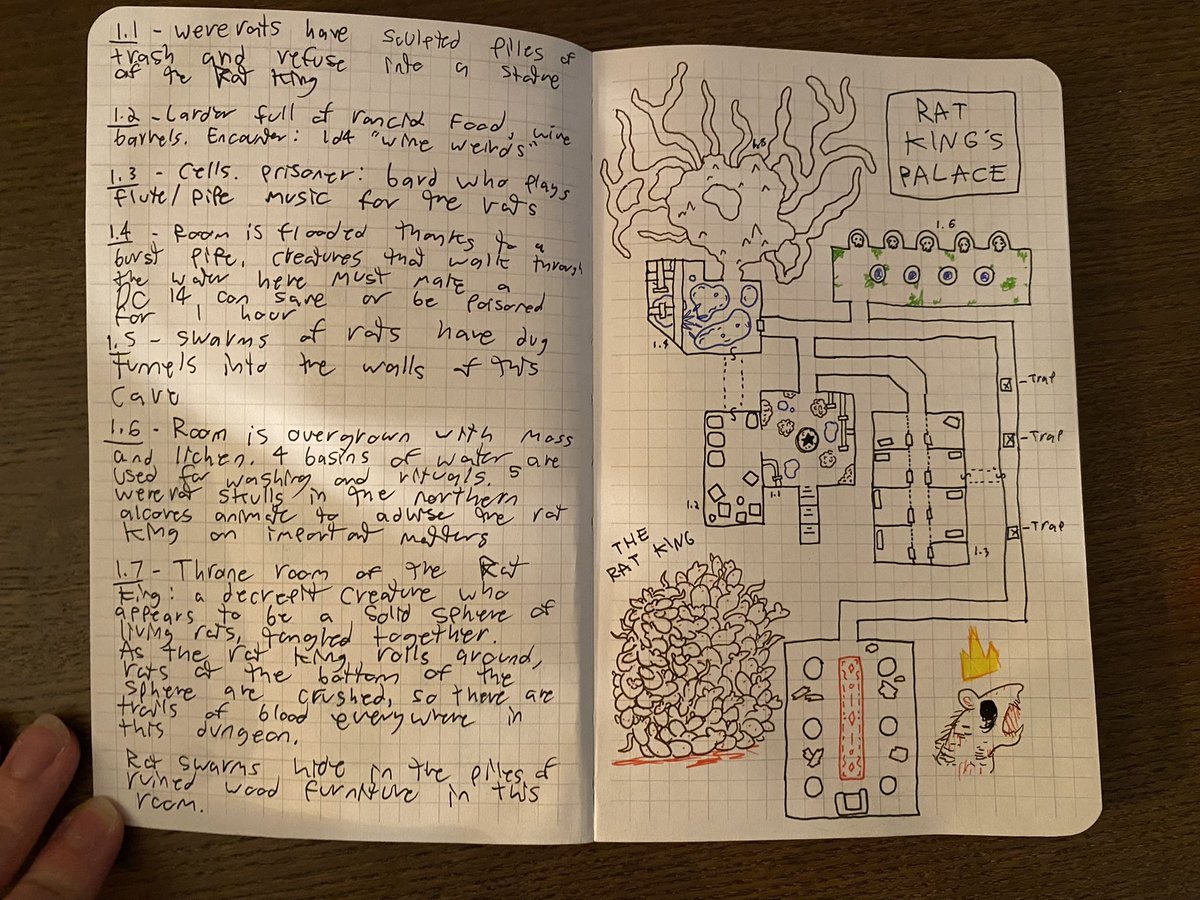 1.1 - wererats have sculpted piles of
trash and refuse into a statue
of the Rat King
1.2 - Larder full of rancid food, wine
barrels. Encounter: 1d4 "wine weirds"
1.3 - Cells. prisoner: bard who plays
flute/pipe music for the rats
1.4 - Room is flooded thanks to a
burst pipe, creatures that walk through
the water here must make a
DC 14 con save or be poisoned
for 1 hour
1.5 - swarms of rats have dug
tunnels into the walls of this
cave
1.6 - Room is overgrown with moss
and lichen. 4 basins of water are
used for washing and rituals. 5
wererat skulls in the northern
alcoves animate to advise the rat
king on important matters
1.7 - Throne room of the Rat
King: a decrepit creature who
appears to be a solid sphere of
living rats, tangled together.
As the rat king rolls around,
rats at the bottom of the
sphere are crushed, so there are
trails of blood everywhere in
this dungeon.
Rat swarms hide in the piles of
ruined wood furniture in this
room.
RAT
KING'S
PALACE
1.5
1.6
1.4
S
S
Trap
Trap
Trap
1.2
1.1
1.3
THE
RAT KING